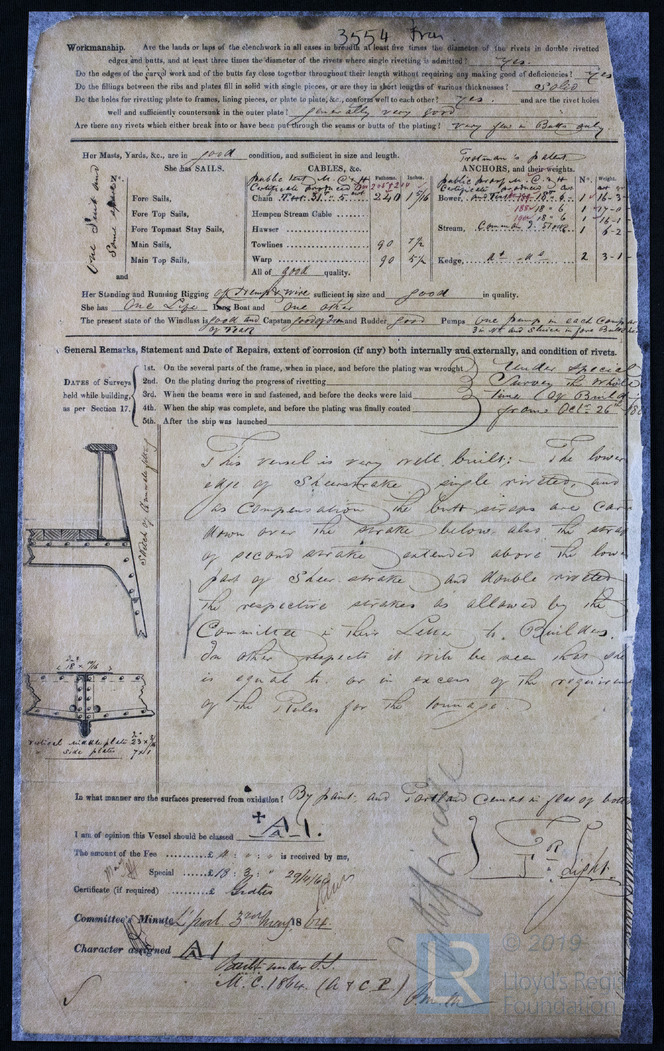 3554 Iron
Workmanship. Are the lands or laps of the clenchwork in all cases in breadth at least five times the diameter of the rivets in double rivetted
edges and butts, and at least three times the diameter of the rivets where single rivetting is admitted? yes.
Do the edges of the carvel work and of the butts fay close together throughout their length without requiring any making good of deficiencies? yes
Do the fillings between the ribs and plates fill in solid with single pieces, or are they in short lengths of various thicknesses? solid
Do the holes for rivetting plate to frames, lining pieces, or plate to plate, &c., conform well to each other? yes. and are the rivet holes
well and sufficiently countersunk in the outer plate? generally very good
Are there any rivets which either break into or have been put through the seams or butts of the plating? very few in Butts only
Her Masts, Yards, &c., are in good condition, and sufficient in size and length. Trotman's patent
She has SAILS. CABLES, &c. Fathoms. Inches. ANCHORS, and their weights. Nº. Weight.
One Suit and Some spare
Fore Sails, Chain 240 1 5/16 Bower,
Fore Top Sails, Hempen Stream Cable
Fore Topmast Stay Sails, Hawser Stream, 1 6-2
Main Sails, Towlines 90 7½
Main Top Sails, Warp 90 5½ Kedge, 2 3-1
and All of good quality.
Her Standing and Running Rigging of hemp & wire sufficient in size and good in quality.
She has One Life Long Boat and one other
The present state of the Windlass is good and Capstan good and Rudder good Pumps one pump in each
General Remarks, Statement and Date of Repairs, extent of corrosion (if any) both internally and externally, and condition of rivets.
DATES of Surveys held while building, as per Section 17.
1st. On the several parts of the frame, when in place, and before the plating was wrought Under special
2nd. On the plating during the progress of rivetting Survey the whole
3rd. When the beams were in and fastened, and before the decks were laid time of Build
4th. When the ship was complete, and before the plating was finally coated from Oct. 26th
5th. After the ship was launched
Sketch of
This vessel is very well built:- The lower
edge of Sheerstrake single riveted, and
as compensation the butt straps are car
down over the strake below. also the strap
of second strake extended above the low
part of Sheer strake and double riveted
the respective strakes as allowed by the
Committee in their Letter to Builders.
In other respects it will be seen that she
is equal to, or in excess of the requirem
of the Rules for the tonnage
18 × 7/16
vertical middle plate 23 ×
side plates 7 × 1
In what manner are the surfaces preserved from oxidation? By paint and Portland Cement in flat of bott
I am of opinion this Vessel should be classed A1.
The amount of the Fee £ is received by me,
Special £ 13 : 3 : 29/4/64
Certificate (if required) £ Gratis
J R Light
Committee's Minute L'pool 3rd May 1864
Character assigned A1
Built under S.S.
M.C. 1864. (A & C.P.)
© 2019
LR
Lloyd's Regis
Foundation